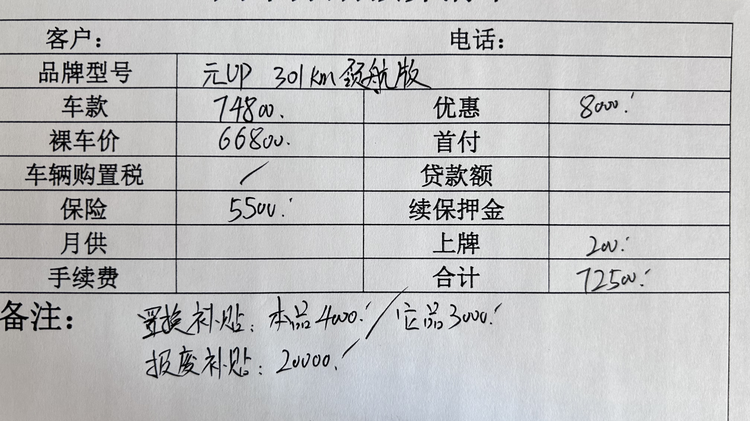 客户： 电话：
品牌型号 元UP 301km 领航版
车款 74800. 优惠 8000.
裸车价 66800. 首付
车辆购置税 / 贷款额
保险 5500. 续保押金
月供 上牌 200.
手续费 合计 72500.
备注： 置换补贴：本品4000. / 它品3000.
报废补贴：20000.